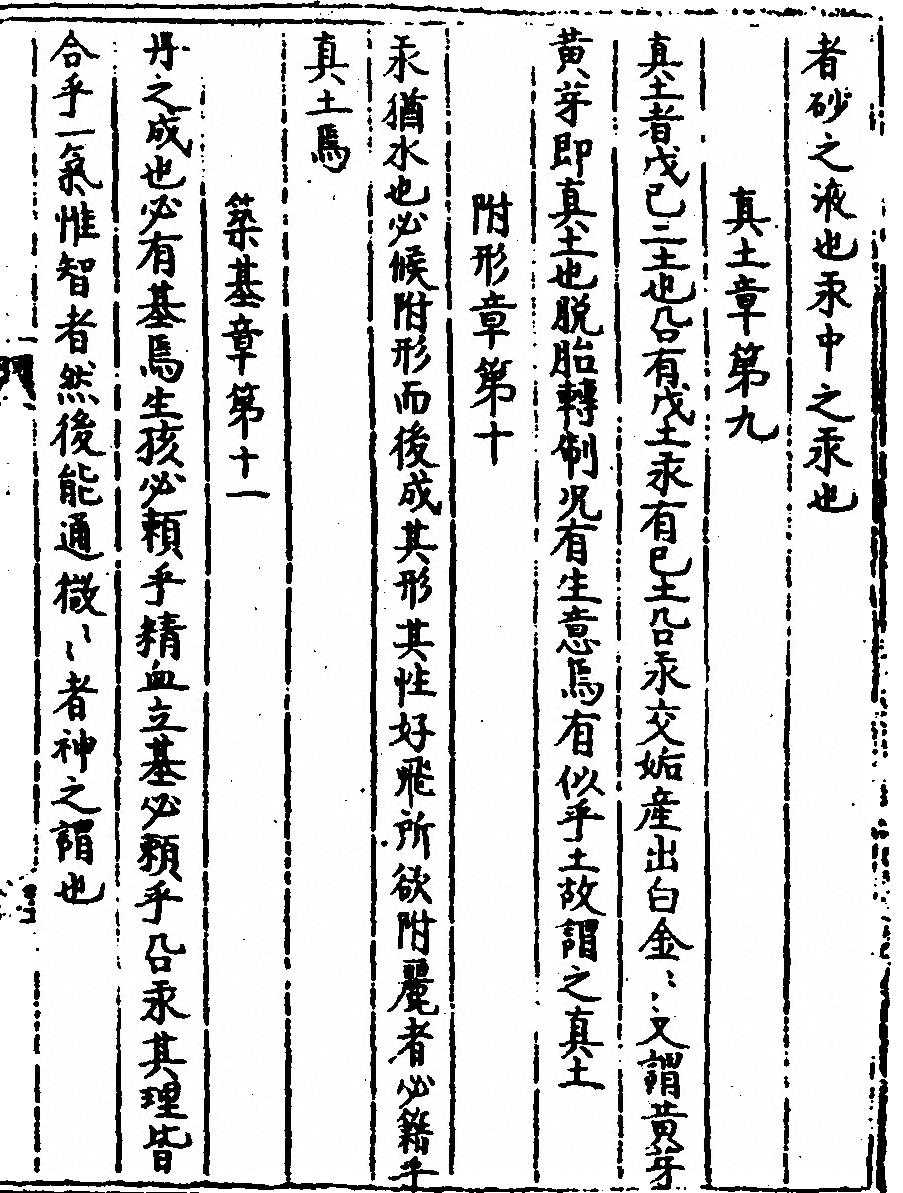 者砂之液也汞中之汞也
真土章第九
真土者戊己二土也鉛有戊土汞有己土鉛汞交姤産出白金〻又謂黄芽
黄芽即真土也脱胎轉制况有生意焉有似乎土故謂之真土
附形章第十
汞猶水也必候附形而後成其形其性好飛所欲附麗者必籍乎
真土焉
築基章第十一
丹之成也必有基焉生孩必頼乎精血立基必頼乎鉛汞其理皆
合乎一氣惟智者然後能通檄〻者神之謂也